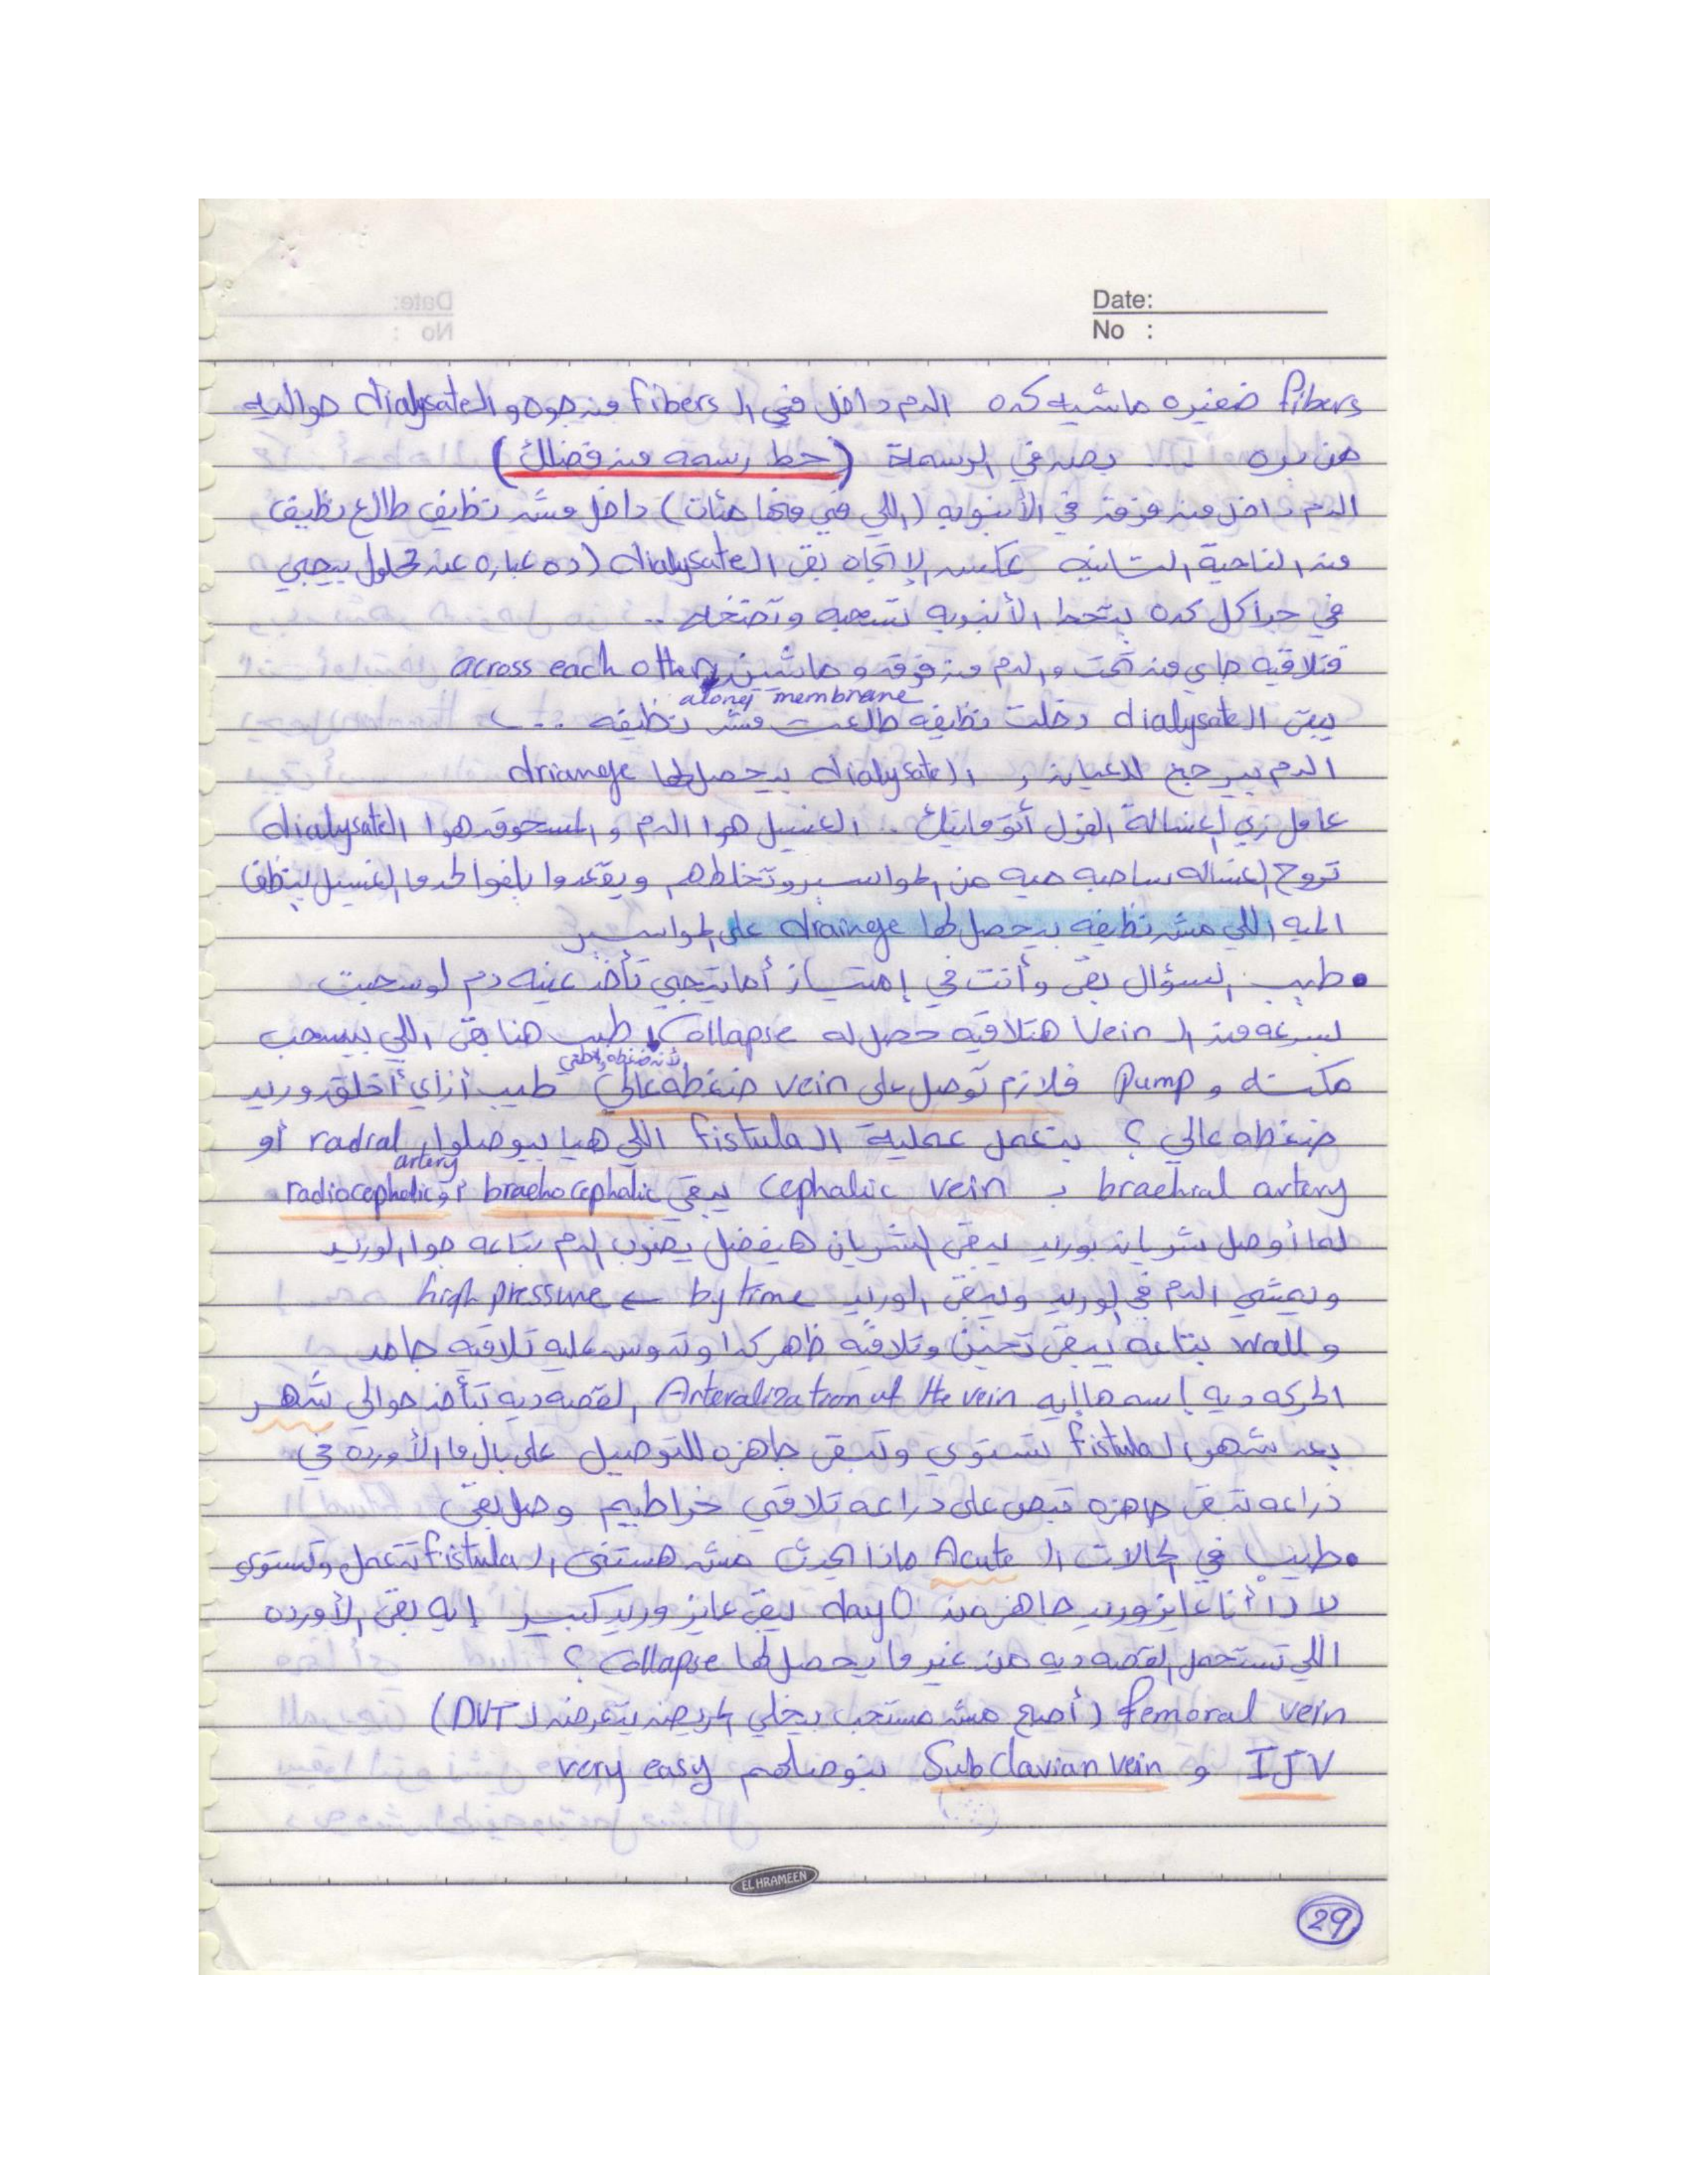 Date:
No :
fibers صغيره ماشيه كده الدم داخل في ال fibers من جوه و ال dialysate حواليه
من بره .... بصد في الرسمة (حط رسمه من فضلك)
الدم داخل من فوق في الأنبوبه (اللي فيها مئات) داخل مش نظيف طالع نظيف
من الناحية التانيه عكس الإتجاه بقى ال dialysate (ده عباره عن محلول بيجي
في جراكل كده بتحط الأنبوبه تسحبه وتضخه ..
فتلاقيه جاي من تحت والدم من فوق و ماشين across each other
along membrane
يبقى ال dialysate دخلت نظيفه طلعت مش نظيفه ...
الدم بيرجع للعيان و ال dialysate بيحصلها driange
عامل زي غسالة الفول أتوماتيك .. الغسيل هوا الدم و المسحوق هوا ال dialysate
تروح الغساله ساحبه ميه من المواسير وتخلطهم ويقعدوا يلفوا لحد ما الغسيل ينظف
الميه اللي مش نظيفه بيحصلها drainge على المواسير
• طيب السؤال بقى وأنت في إمتياز أما تيجي تأخذ عينه دم لو سحبت
بسرعه من ال Vein هتلاقيه حصل له Collapse طيب هنا بقى اللي بيسحب
لأنه ضغطه واطي
مكنه و Pump فلازم توصل على vein ضغطه عالي طيب أزاي أخلق وريد
ضغطه عالي ؟ بتعمل عملية ال fistula اللي هيا بيوصلوا radial أو
artery
brachial artery بـ cephalic vein يبقى braehocephalic أو radiocephalic
لما أوصل شريان بوريد يبقى الشريان هيفضل يصوب الدم بتاعه جوا الوريد
ويمشي الدم في الوريد ويبقى الوريد by time ← high pressure
و wall بتاعه يبقى تخين وتلاقيه ظهر كدا وتدوس عليه تلاقيه جامد
الحركه ديه إسمها إيه Arteralization of the vein القصه ديه بتأخذ حوالي شهر
بعد شهر ال fistula تستوي وتبقى جاهزه للتوصيل على بال ما الأورده في
ذراعه تبقى جاهزه تبص على دراعه تلاقي خراطيم وصل بقى
• طيب في الحالات ال Acute ماذا يحدث مش هستنى ال fistula تتعمل وتستوي
لا دا أنا عايز وريد جاهز من day 0 يبقى عايز وريد كبير إيه بقى الأورده
اللي تستحمل القصه ديه من غير ما يحصلها Collapse ؟
femoral vein (أصبح مش مستحب بيخلي المريض يتعرض لـ DVT)
IJV و Subclavian vein بنوصلهم very easy
EL HRAMEEN
29